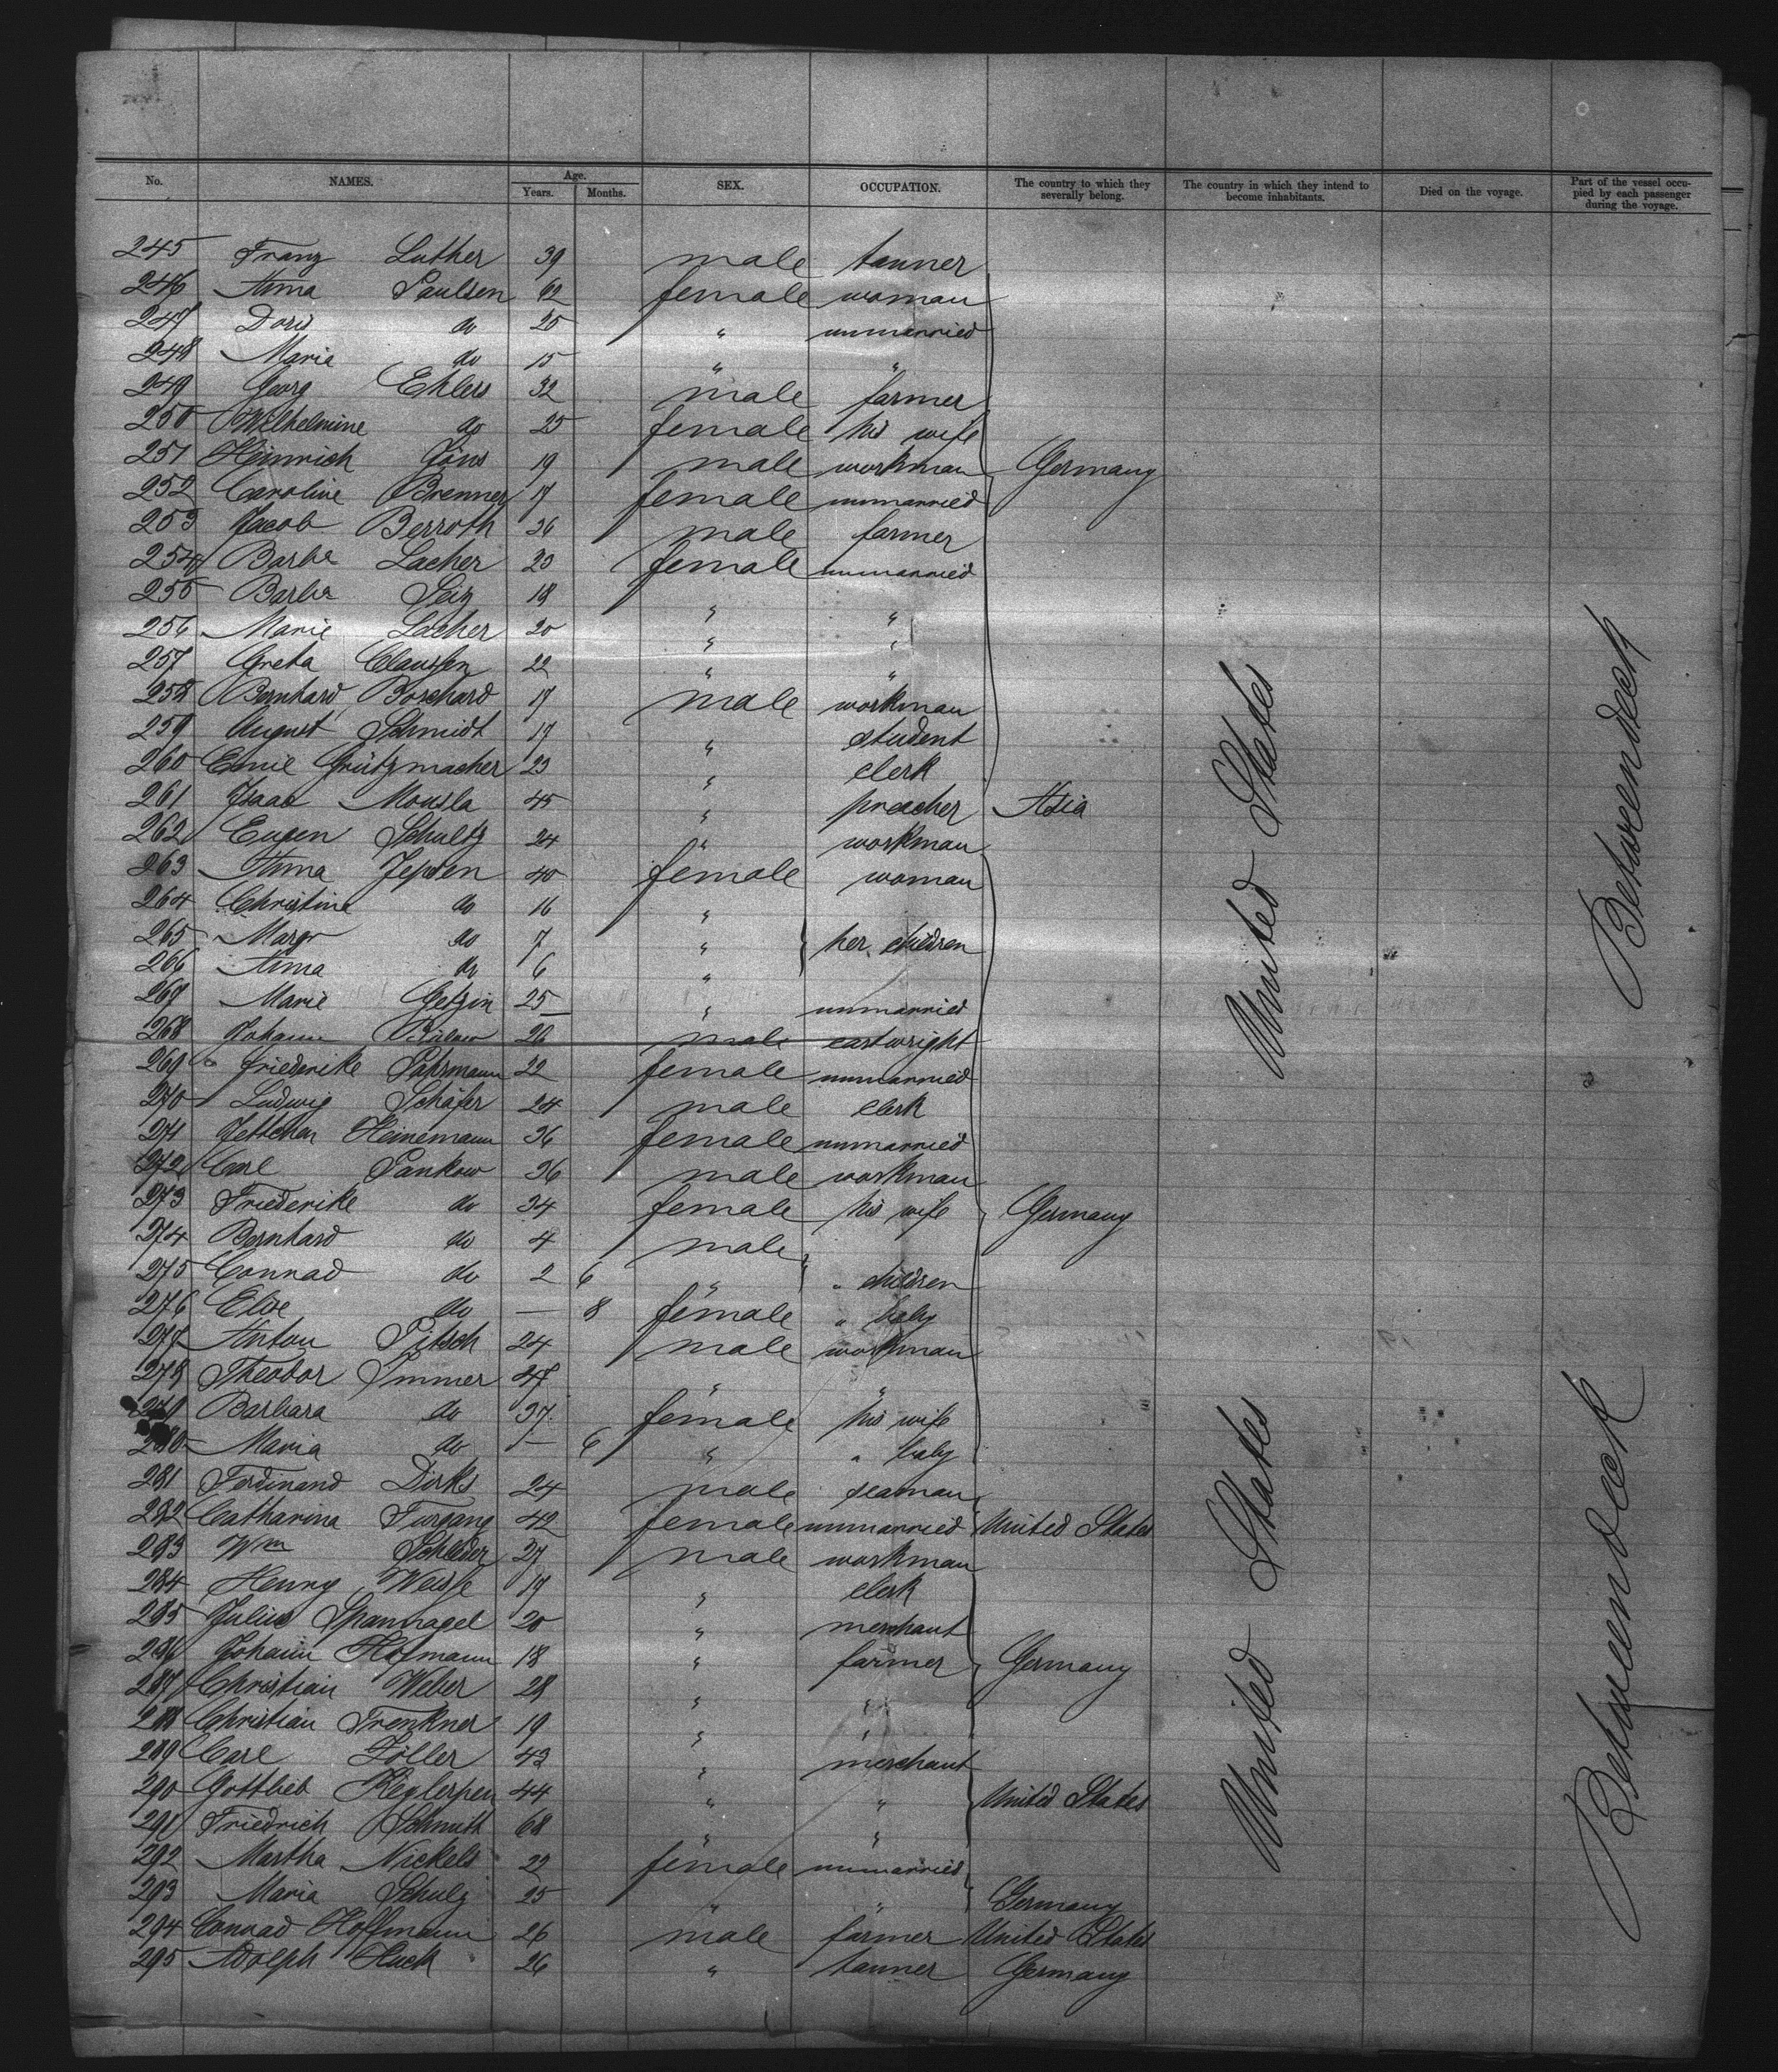 No. NAMES. Age. Years. Months. SEX. OCCUPATION. The country to which they severally belong. The country in which they intend to become inhabitants. Died on the voyage. Part of the vessel occupied by each passenger during the voyage.
245 Franz Luther 39 male tanner
246 Anna Paulsen 62 female woman
247 Doris do 20 " unmarried
248 Maria do 15 " "
249 Georg Ehlers 32 male farmer
250 Wilhelmine do 25 female his wife
251 Heinrich Göns 19 male workman Germany
252 Caroline Brenner 17 female unmarried
253 Jacob Berroth 36 male farmer
254 Barba Lacher 20 female unmarried
255 Barba Seiz 18 " "
256 Marie Lacher 20 " "
257 Greta Claussen 22 " "
258 Bernhard Borchard 17 male workman
259 August Schmidt 17 " student
260 Emil Grützmacher 23 " clerk
261 Isaac Mousla 45 " preacher Asia
262 Eugen Schultz 24 " workman
263 Anna Jepsen 40 female woman
264 Christine do 16 "
265 Margr do 7 " her children
266 Anna do 6 "
267 Marie Getzin 25 " unmarried
268 Johann Bülow 26 male cartwright
269 Friederike Pahrmann 22 female unmarried
270 Ludwig Schäfer 24 male clerk
271 Jettchen Heinemann 36 female unmarried
272 Carl Pankow 36 male workman
273 Friederike do 34 female his wife Germany
274 Bernhard do 4 male
275 Conrad do 2 6 " " children
276 Elise do — 8 female " baby
277 Anton Pitsch 24 male workman
278 Theodor Immer 47 " "
279 Barbara do 37 female his wife
280 Maria do — 6 " " baby
281 Ferdinand Dirks 24 male seaman
282 Catharina Furgang 42 female unmarried United States
283 Wm Scheder 27 male workman
284 Henry Weisse 17 " clerk
285 Julius Spannagel 20 " merchant
286 Johann Hofmann 18 " farmer Germany
287 Christian Weber 28 " "
288 Christian Trenkner 19 " "
289 Carl Zöller 43 " merchant
290 Gottlieb 44 " " United States
291 Friedrich Schmith 68 " "
292 Martha Nickels 22 female unmarried
293 Maria Schulz 25 " " Germany
294 Conrad Hoffmann 26 male farmer United States
295 Adolph Huck 26 " tanner Germany
United States
Betweendeck
United States
Betweendeck